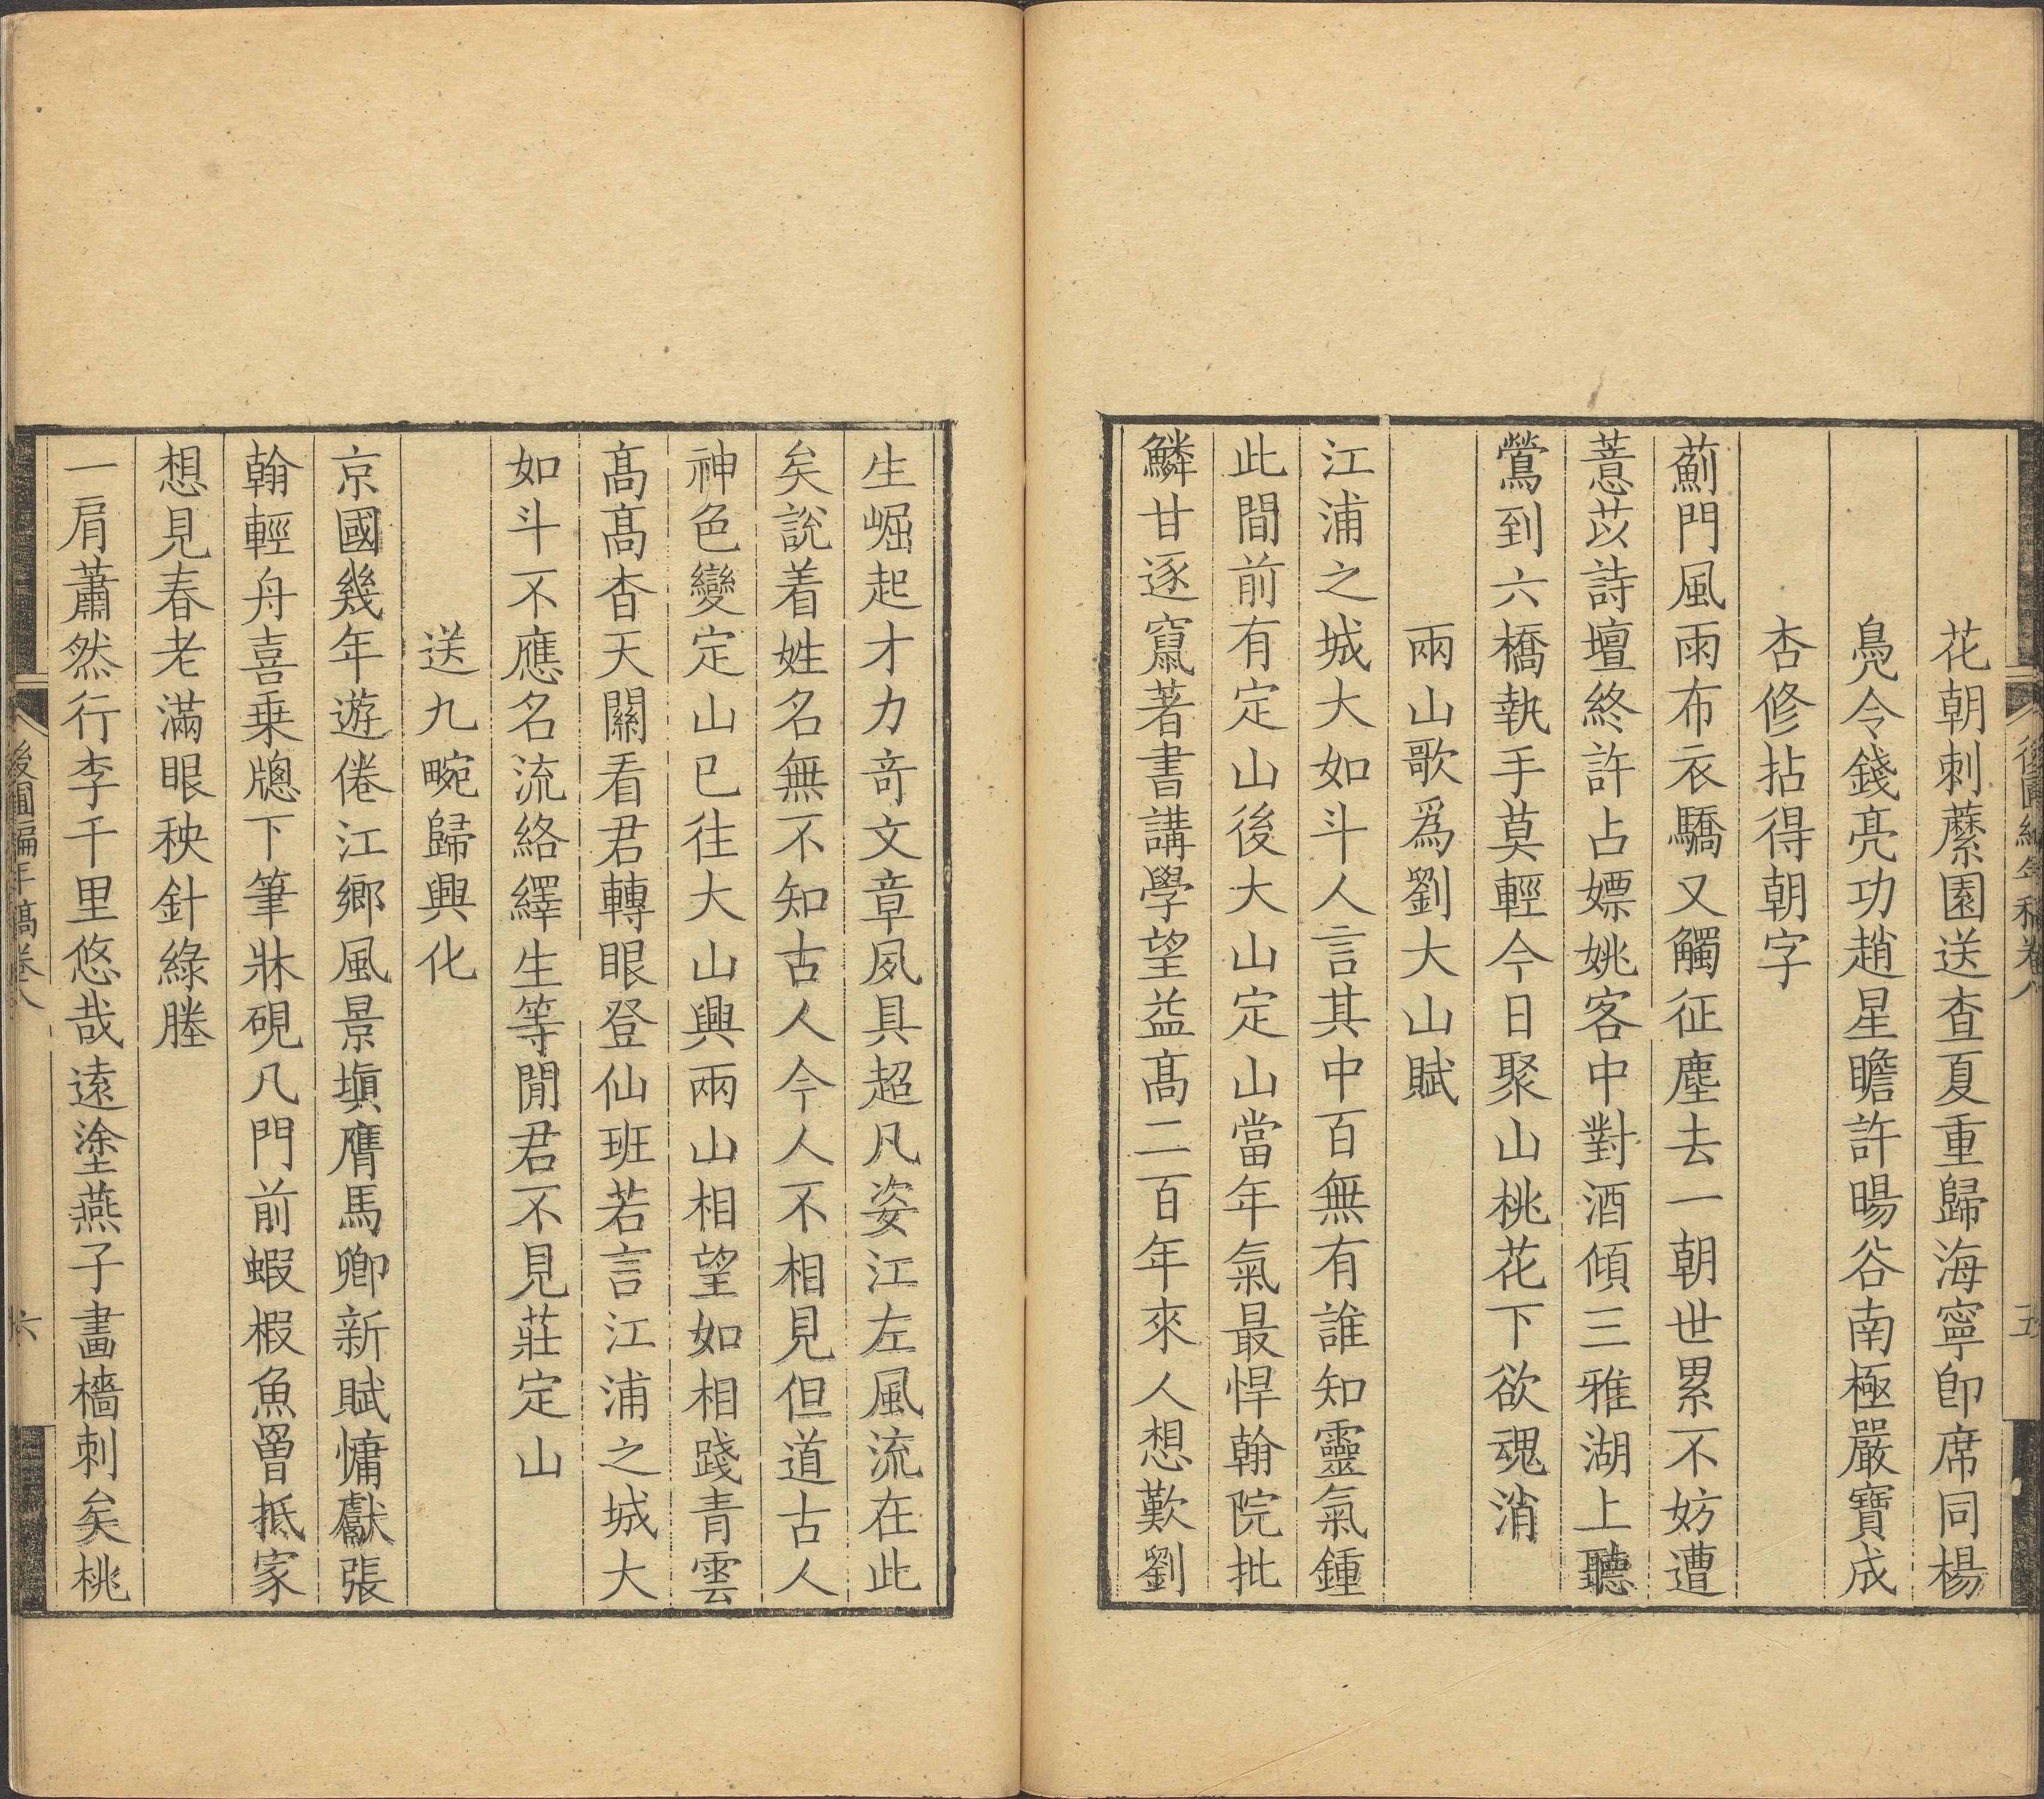 花朝刺蘪園送查夏重歸海寧卽席同楊
鳧令錢亮功趙星瞻許暘谷南極嚴寶成
杏修拈得朝字
薊門風雨布衣驕又觸征塵去一朝世累不妨遭
薏苡詩壇終許占嫖姚客中對酒傾三雅湖上聽
鶯到六橋執手莫輕今日聚山桃花下欲魂消
兩山歌爲劉大山賦
江浦之城大如斗人言其中百無有誰知靈氣鍾
此間前有定山後大山定山當年氣最悍翰院批
鱗甘逐竄著書講學望益高二百年來人想歎劉
後圃編年稿卷八
五
生崛起才力奇文章夙具超凡姿江左風流在此
矣說着姓名無不知古人今人不相見但道古人
神色變定山已往大山興兩山相望如相踐青雲
髙髙杳天關看君轉眼登仙班若言江浦之城大
如斗不應名流絡繹生等閒君不見莊定山
送九畹歸興化
京國幾年遊倦江鄉風景塡膺馬卿新賦慵獻張
翰輕舟喜乗牎下筆牀硯几門前蝦椵魚罾抵家
想見春老滿眼秧針綠塍
一肩蕭然行李千里悠哉遠塗燕子畵檣刺矣桃
後圃編年稿卷八
六